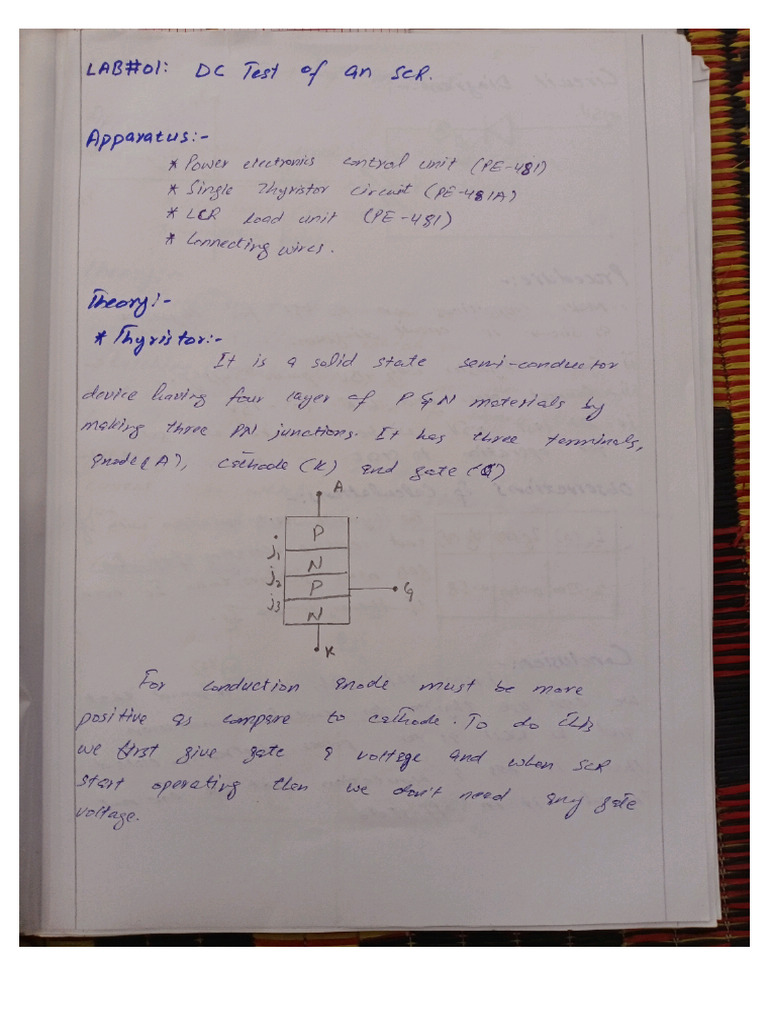 LAB#01: DC Test of an SCR.
Apparatus:-
* Power electronics control unit (PE-481)
* Single Thyristor circuit (PE-481A)
* LCR Load unit (PE-481)
* Connecting wires.
Theory:-
* Thyristor:-
It is a solid state semi-conductor
device having four layer of P & N materials by
making three PN junctions. It has three terminals,
anode(A), cathode (K) and gate (G)
A
P
j1
N
j2
P
G
j3
N
K
For conduction anode must be more
positive as compare to cathode. To do this
we first give gate a voltage and when SCR
start operating then we don't need any gate
voltage.